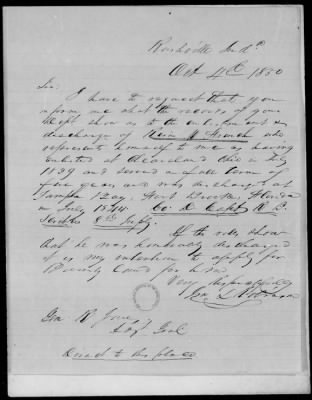 Rushville Inda
Oct 4th 1850
Sir:
I have to request that you
inform me what the records of your
Dept show as to the enlistment &
discharge of French who
represents himself to me as having
enlisted at Cleaveland Ohio in July
1839 and served a full term of
five years and was discharged at
Tampa Bay, Fort Brooke, Florida
in July 1844. Co. D Capt
8th Infty.
If the rolls show
that he was honorably discharged
it is my intention to apply for
Bounty Land for him.
Very Respectfully
Gen R Jones
Adjt Genl